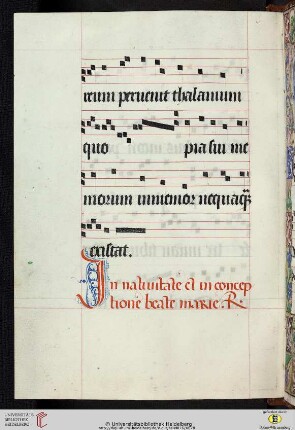 reum peruenit thalamum
quo pia sui me
morum inmemor nequaq̄
existat.
In natiuitate et in concep
tione beate marie. R
© Universitätsbibliothek Heidelberg
UNIVERSITÄTS-
BIBLIOTHEK
HEIDELBERG